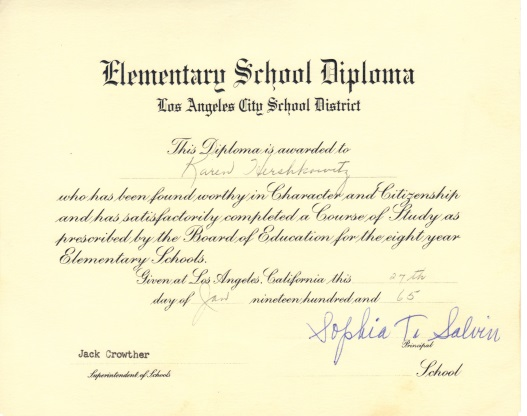 Elementary School Diploma
Los Angeles City School District
This Diploma is awarded to
Karen Hershkowitz
who has been found worthy in Character and Citizenship
and has satisfactorily completed a Course of Study as
prescribed by the Board of Education for the eight year
Elementary Schools.
Given at Los Angeles, California this 27th
day of Jan nineteen hundred and 65
Sophia T. Salvin
Principal
Jack Crowther
Superintendent of Schools
School